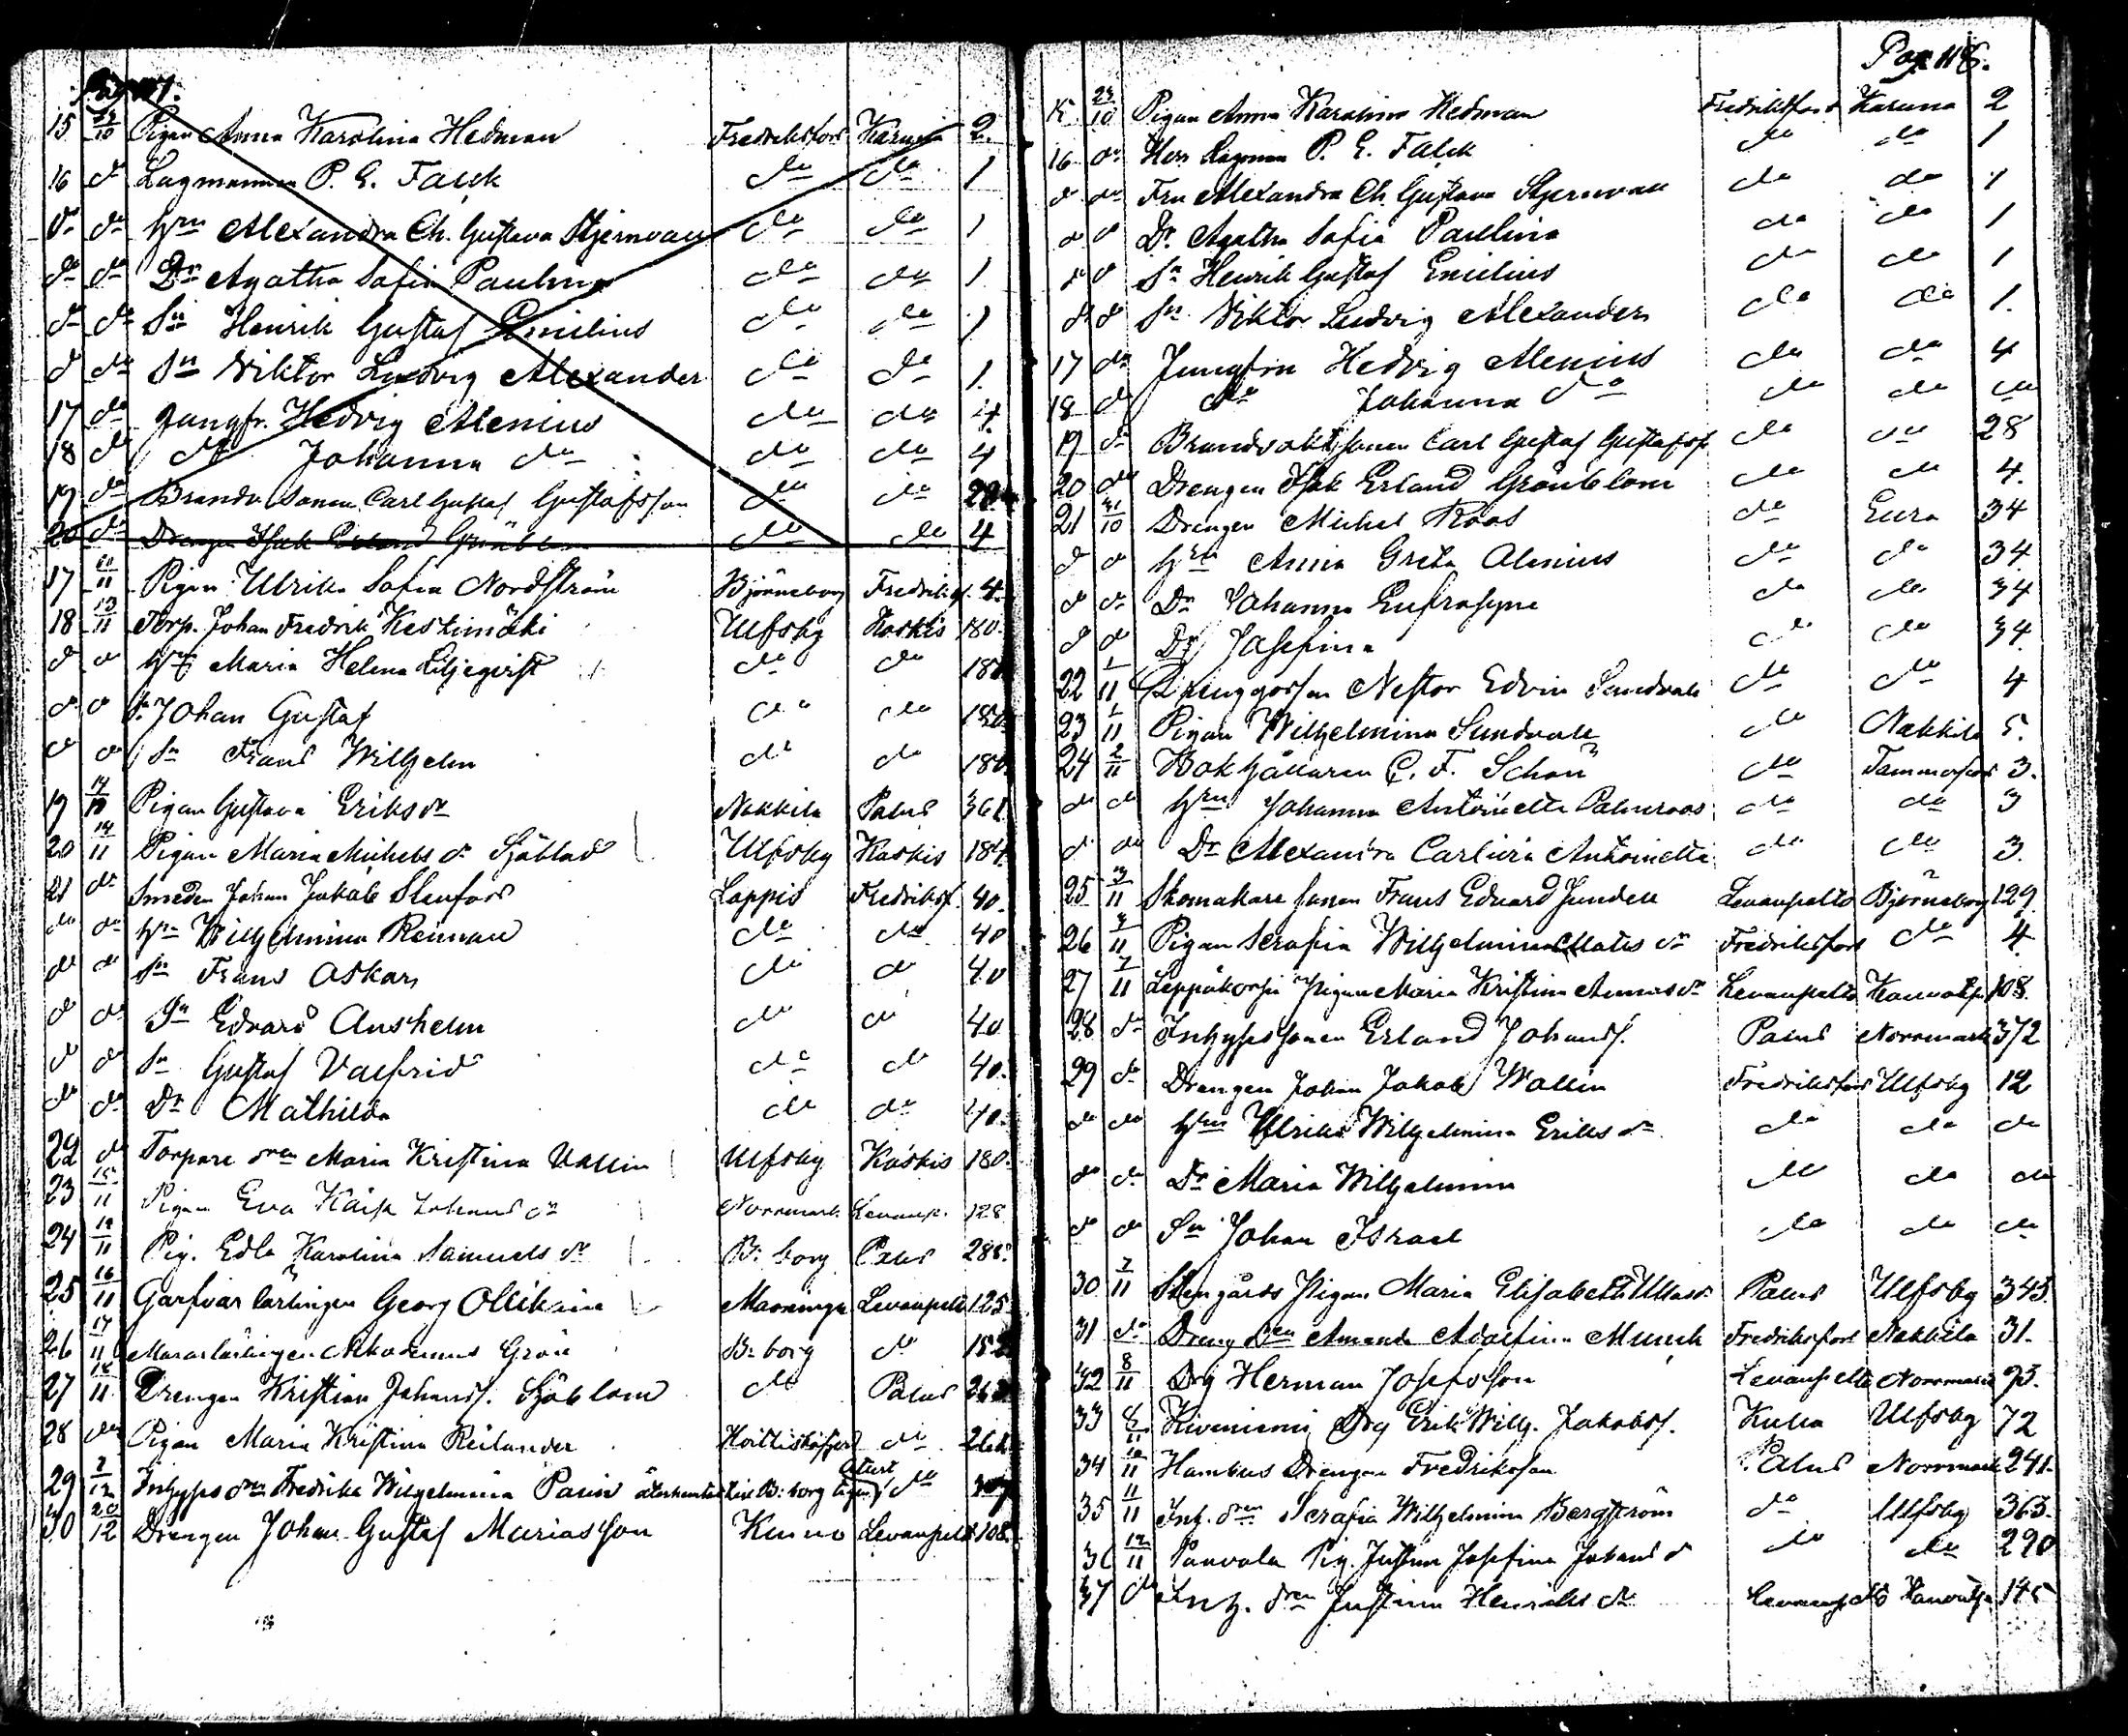 Pag 117.
15 24/10 Pigan Anna Karolina Hedman Fredriksfors Karuna 2.
16 do Lagmannen P. E. Falck do do 1
do do Hru Alexandra Ch. Gustava Stjernvall do do 1
do do Dr Agatha Sofia Paulina do do 1
do do Sn Henrik Gustaf Emilius do do 1
do do Sn Viktor Ludvig Alexander do do 1.
17 do Jungfr. Hedvig Alenius do do 4.
18 do do Johanna do do do 4
19 do Brandv. Sonen Carl Gustaf Gustafsson do do 28
20 do Drengen Isak Erland Grönblom do do 4
17 11 Pigan Ulrika Sofia Nordström Björneborg Fredriksf. 4.
18 13/11 Torp. Johan Fredrik Keskimäki Ulfsby Kaskis 180.
do do Hru Maria Helena Liljeqvist do do 180
do do Sn Johan Gustaf do do 180
do do Sn Frans Wilhelm do do 180.
19 14 Pigan Gustava Eriksdr Nakkila Palus 361
20 14/11 Pigan Maria Michelsdr Sjöblad Ulfsby Kaskis 184.
21 do Smeden Johan Jakob Stenfors Lappis Fredriksf. 40.
do do Hru Wilhelmina Reiman do do 40
do do Sn Frans Oskar do do 40
do do Sn Edvard Anshelm do do 40
do do Sn Gustaf Valfrid do do 40.
do do Dr Mathilda do do 40.
22 do Torparedren Maria Kristina Vallin Ulfsby Kaskis 180.
23 15/11 Pigan Eva Kaisa Johansdr Norrmark Levanp. 128
24 11 Pig. Edla Karolina Samuelsdr B:borg Palus 288.
25 16/11 Garfvarlärlingen Georg Ollikain Levanpelto 125
26 17/11 Grön B:borg do 152
27 18/11 Drengen Kristian Johanss. Sjöblom do Palus
28 do Pigan Maria Kristina Reilander do
29 7/12 Inhysesdren Fredrika Wilhelmina B:borg do 307
30 20/12 Drengen Johan Gustaf Mariasson Kumo Levanpelto 108.
Pag 118.
15 24/10 Pigan Anna Karolina Hedman Fredriksfors Karuna 2
16 do Herr Lagman P. E. Falck do do 1
do do Fru Alexandra Ch. Gustava Stjernvall do do 1
do do Dr. Agatha Sofia Paulina do do 1
do do Sn Henrik Gustaf Emilius do do 1
do do Sn Viktor Ludvig Alexander do do 1.
17 do Jungfru Hedvig Alenius do do 4
18 do do Johanna do do do do
19 do Brandvaktssonen Carl Gustaf Gustafss. do do 28
20 do Drengen Isak Erland Grönblom do do 4.
21 31/10 Drengen Michel Roos do Eura 34
do do Hru Anna Greta Alenius do do 34.
do do Dr Johanna Eufrosyne do do 34
do do Dr Josefina do do 34.
22 1/11 Nestor Edvin Sundvall do do 4
23 1/11 Pigan Wilhelmina Sundvall do Nakkila 5.
24 2/11 Bokhållaren C. F. Schön do Tammerfors 3.
do do Hru Johanna Antoinette Palmroos do do 3
do do Dr Alexandra Carlivia Antoinette do do 3.
25 3/11 Skomakaresonen Frans Edvard Jundell Levanpelto Björneborg 129.
26 11 Pigan Serafia Wilhelmina Matsdr Fredriksfors do 4.
27 7/11 Leppäkorpi Pigan Maria Kristina Levanpelto 108.
28 do Inhysessonen Erland Johanss. Palus Norrmark 372
29 do Drengen Johan Jakob Wallin Fredriksfors Ulfsby 12
do do Hru Ulrika Wilhelmina Eriksdr do do do
do do Dr Maria Wilhelmina do do do
do do Sn Johan Israel do do do
30 7/11 Stengårds Pigan Maria Elisabeth Palus Ulfsby 343.
31 do Drengdren Amanda Adolfina Munck Fredriksfors Nakkila 31.
32 8/11 Drg Herman Josefsson Levanpelto Norrmark 93.
33 8/11 Kiveniemi Drg Erik Wilh. Jakobss. Kulla Ulfsby 72
34 10/11 Hambus Drengen Fredriksson Palus Norrmark 241.
35 11/11 Inh. dren Serafia Wilhelmina Bergström do Ulfsby 363.
36 12/11 Panvola Pig. Justina Josefina Johansdr do do 290
37 do Inh. dren Justina Henriksdr Levanpelto 145